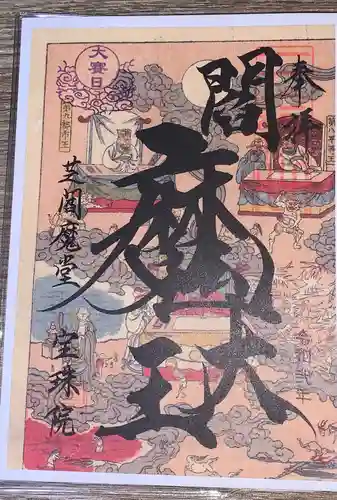 奉拝
閻魔大王
令和弐年
大賽日
芝閻魔堂
宝珠院